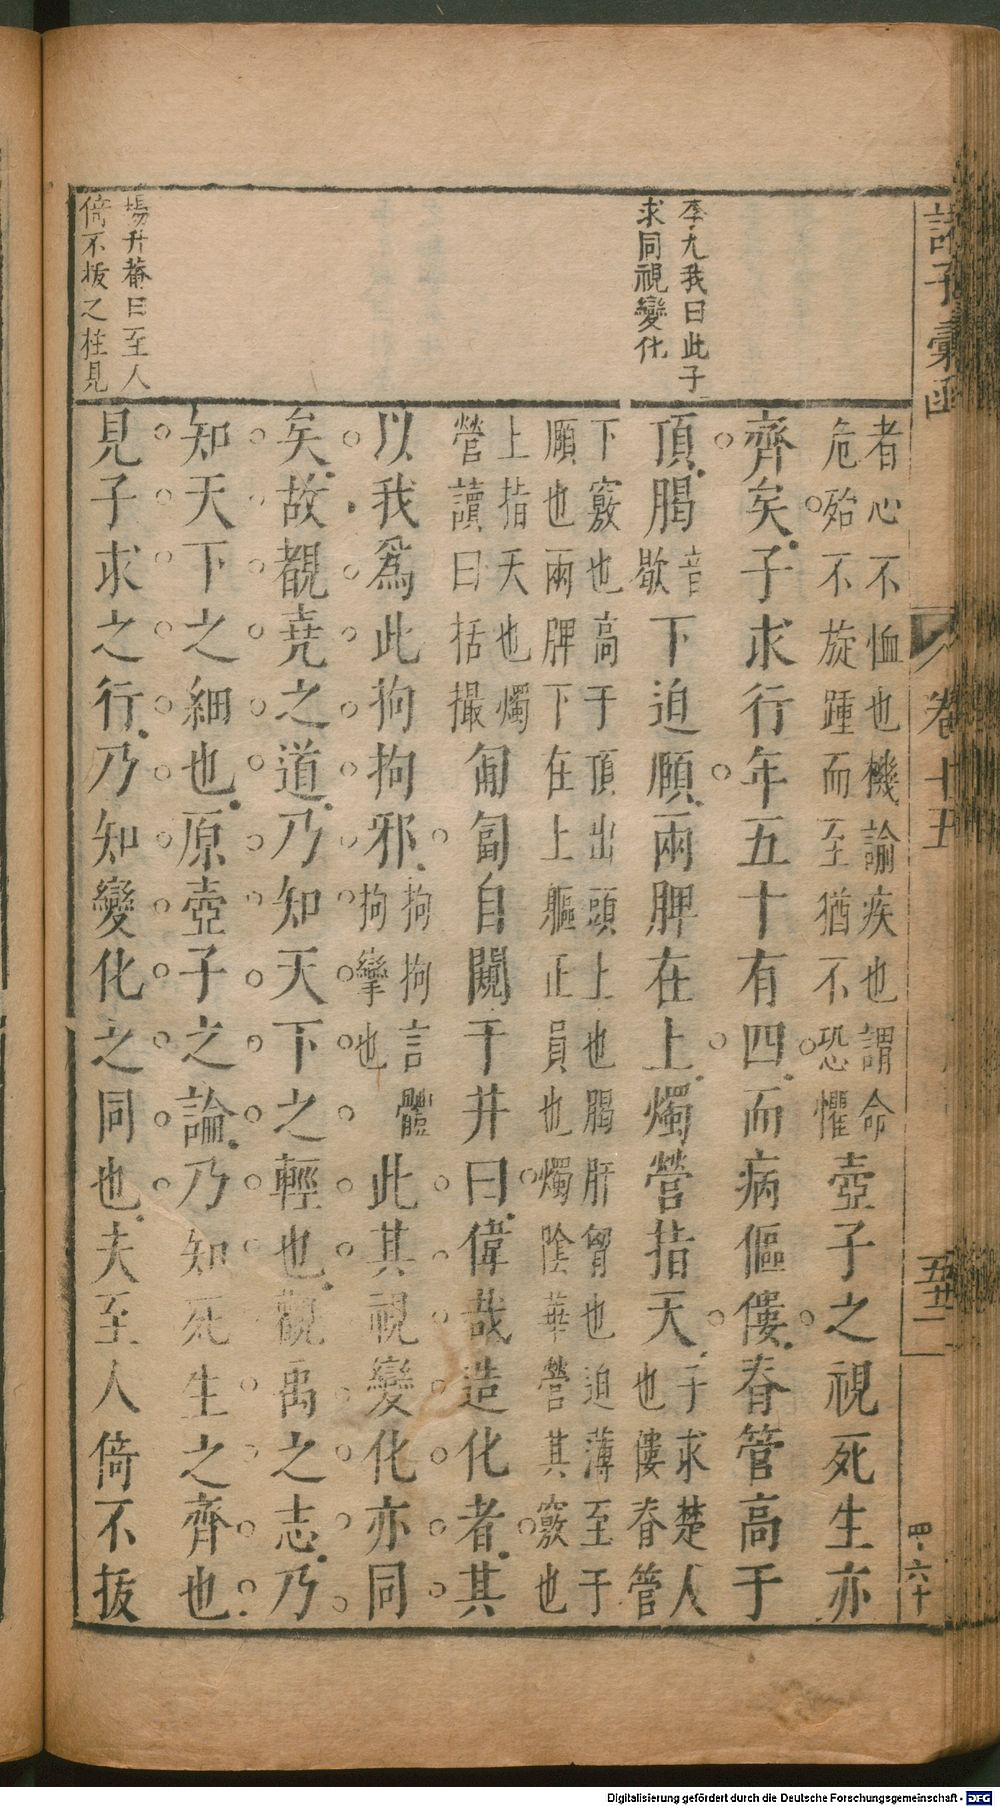 諸子彙函
卷十五
五十二
四·六十
李九我曰此子
求同視變化
楊升菴曰至人
倚不拔之柱見
者心不恤也機諭疾也謂命
危殆不旋踵而至猶不恐懼
壺子之視死生亦
齊矣子求行年五十有四而病傴僂春管高于
頂䐛
音
歇
下迫頤兩脾在上燭營指天
子求楚人
也僂春管
下竅也高于頂出頭上也䐛肝胷也迫薄至于
頤也兩脾下在上軀正員也燭陰華營其竅也
上指天也燭
營讀曰括撮
匍匐自闚于井曰偉哉造化者其
以我爲此拘拘邪
拘拘言體
拘攣也
此其視變化亦同
矣故覩堯之道乃知天下之輕也觀禹之志乃
知天下之細也原壺子之論乃知死生之齊也
見子求之行乃知變化之同也夫至人倚不拔
Digitalisierung gefördert durch die Deutsche Forschungsgemeinschaft - DFG